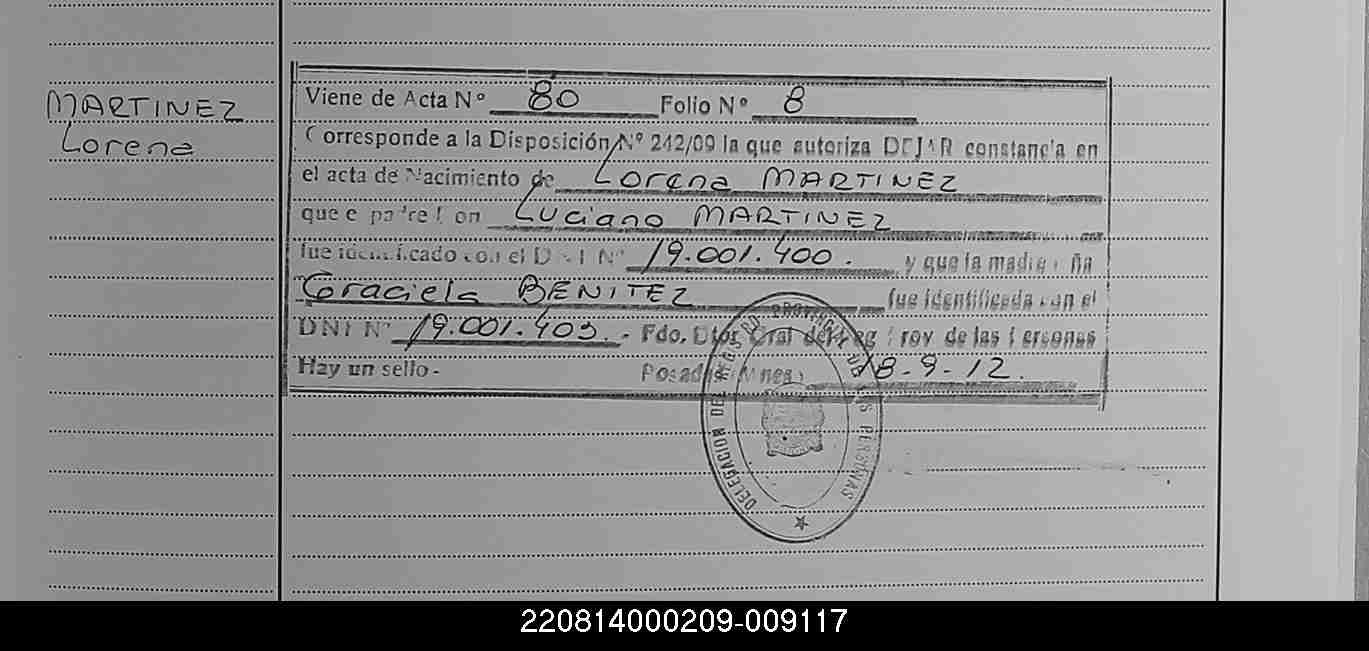 MARTINEZ
Lorena
Viene de Acta Nº 80 Folio Nº 8
Corresponde a la Disposición Nº 242/09 la que autoriza DEJAR constancia en
el acta de Nacimiento de Lorena MARTINEZ
que e padre Luciano MARTINEZ
fue identificado con el DNI Nº 19.001.400. y que la madre
Graciela BENITEZ fue identificada con el
DNI Nº 19.001.403.- Fdo. Dtor Gral del Reg Prov de las Personas
Hay un sello- Posadas Mnes 18-9-12.
DELEGACION DEL REGISTRO PROVINCIAL DE LAS PERSONAS
220814000209-009117